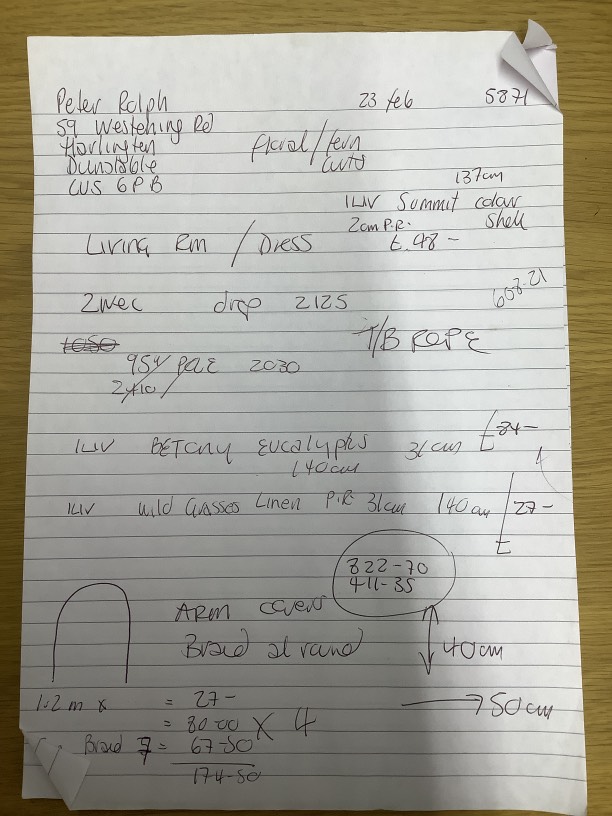 Peter Ralph 23 feb 5871
59 Westening Rd
Harlington
Dunstable floral/fern
LU5 6PB cuts
137cm
ILIV Summit colour
2cm P.R. shell
Living Rm / Dress £.48-
2 wec drop 2125 608.21
1050 T/B ROPE
95% POLE 2030
2410/
ILIV BETONY Eucalyptus 31cm £84-
140cm
ILIV Wild Grasses Linen P.R 31cm 140cm £27-
822-70
411-35
ARM covers
Braid al round 40cm
1.2 m x = 27- 50cm
= 80-00 x 4
Braid 7 = 67-50
174-50